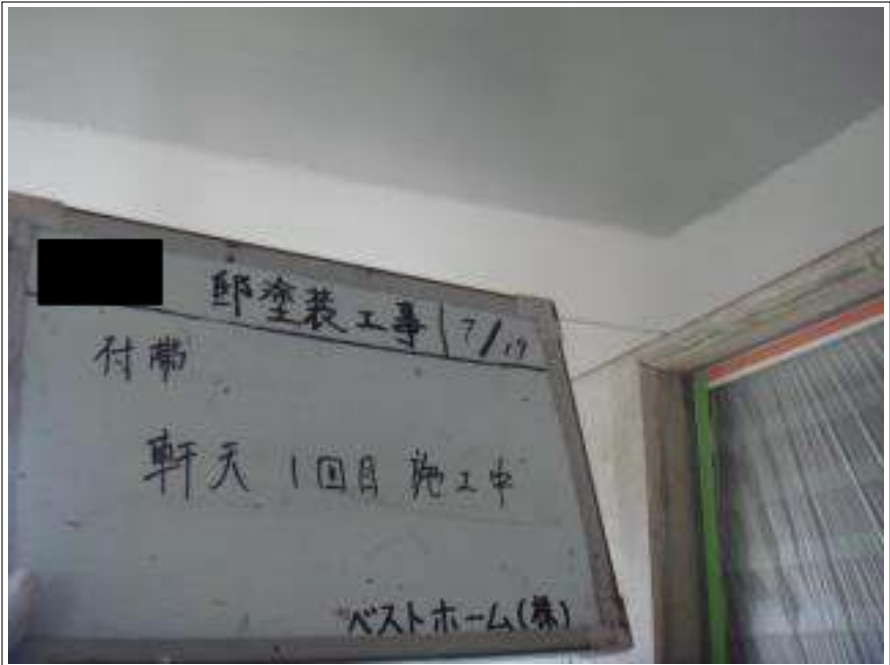 邸塗装工事 7/19
付帯
軒天 1回目 施工中
ベストホーム(株)